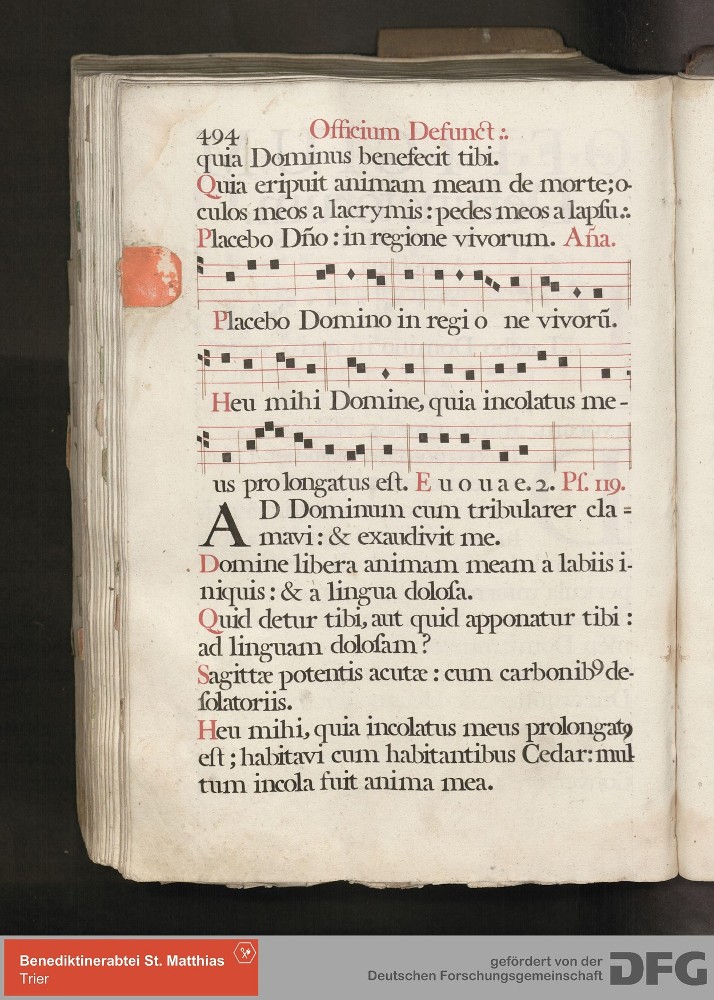 494 Officium Defunct :.
quia Dominus benefecit tibi.
Quia eripuit animam meam de morte; o-
culos meos a lacrymis : pedes meos a lapſu.:.
Placebo Dño : in regione vivorum. Aña.
Placebo Domino in regi o ne vivorũ.
Heu mihi Domine, quia incolatus me -
us pro longatus eſt. E u o u a e. 2. Pſ. 119.
AD Dominum cum tribularer cla =
mavi : & exaudivit me.
Domine libera animam meam a labiis i-
niquis : & a lingua doloſa.
Quid detur tibi, aut quid apponatur tibi :
ad linguam doloſam ?
Sagittæ potentis acutæ : cum carbonibꝰ de-
ſolatoriis.
Heu mihi, quia incolatus meus prolongatꝰ
eſt ; habitavi cum habitantibus Cedar: mul
tum incola fuit anima mea.
Benediktinerabtei St. Matthias
Trier
gefördert von der
Deutschen Forschungsgemeinschaft DFG